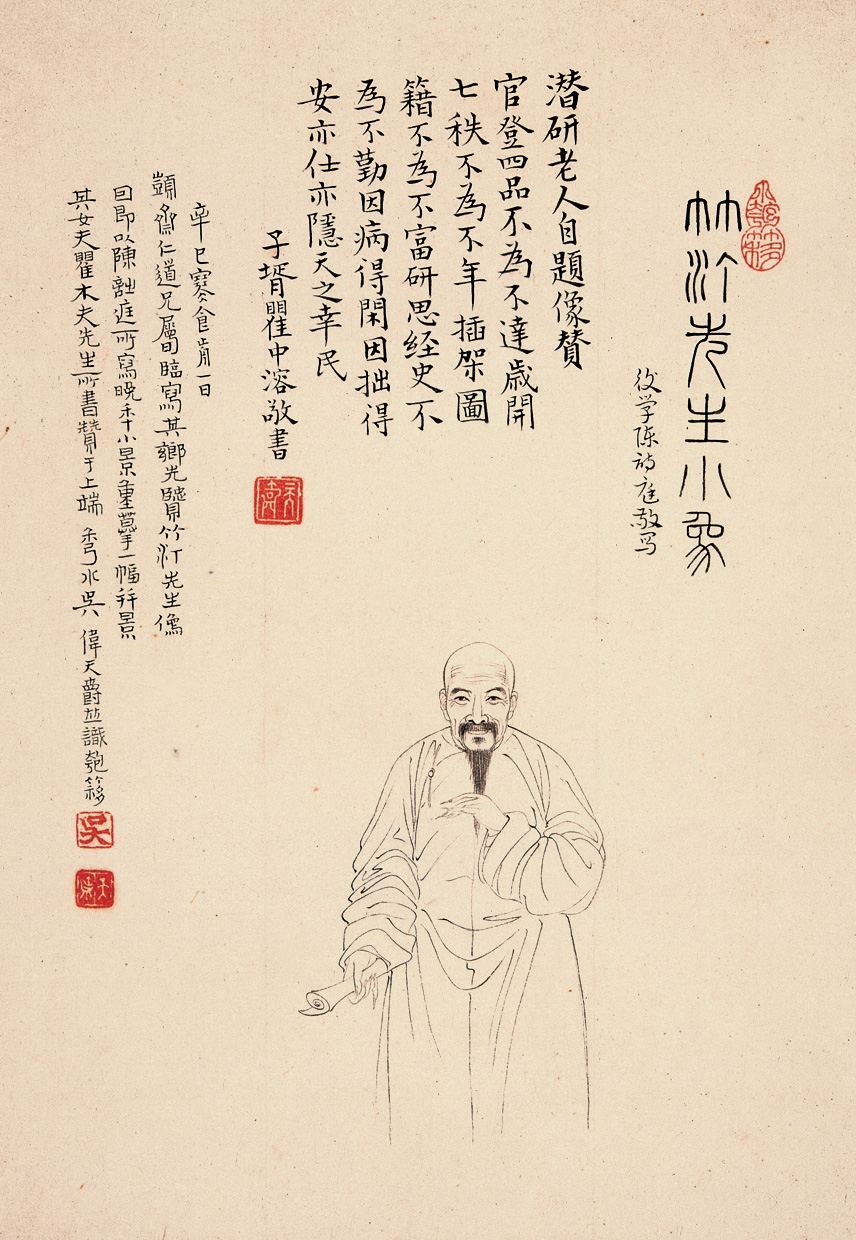 竹汀先生小象
後学陈詩庭敬写
潜研老人自題像贊
官登四品不為不達歲開
七秩不為不年插架圖
籍不為不富研思経史不
為不勤因病得閑因拙得
安亦仕亦隱天之幸民
子壻瞿中溶敬書
辛巳寒食前一日
顗齋仁道兄屬臨寫其鄉先賢竹汀先生像
回即以陳詩庭所寫晚年小景重摹一幀并景
其女夫瞿木夫先生所書贊于上端 秀水吳偉天爵並識
吳